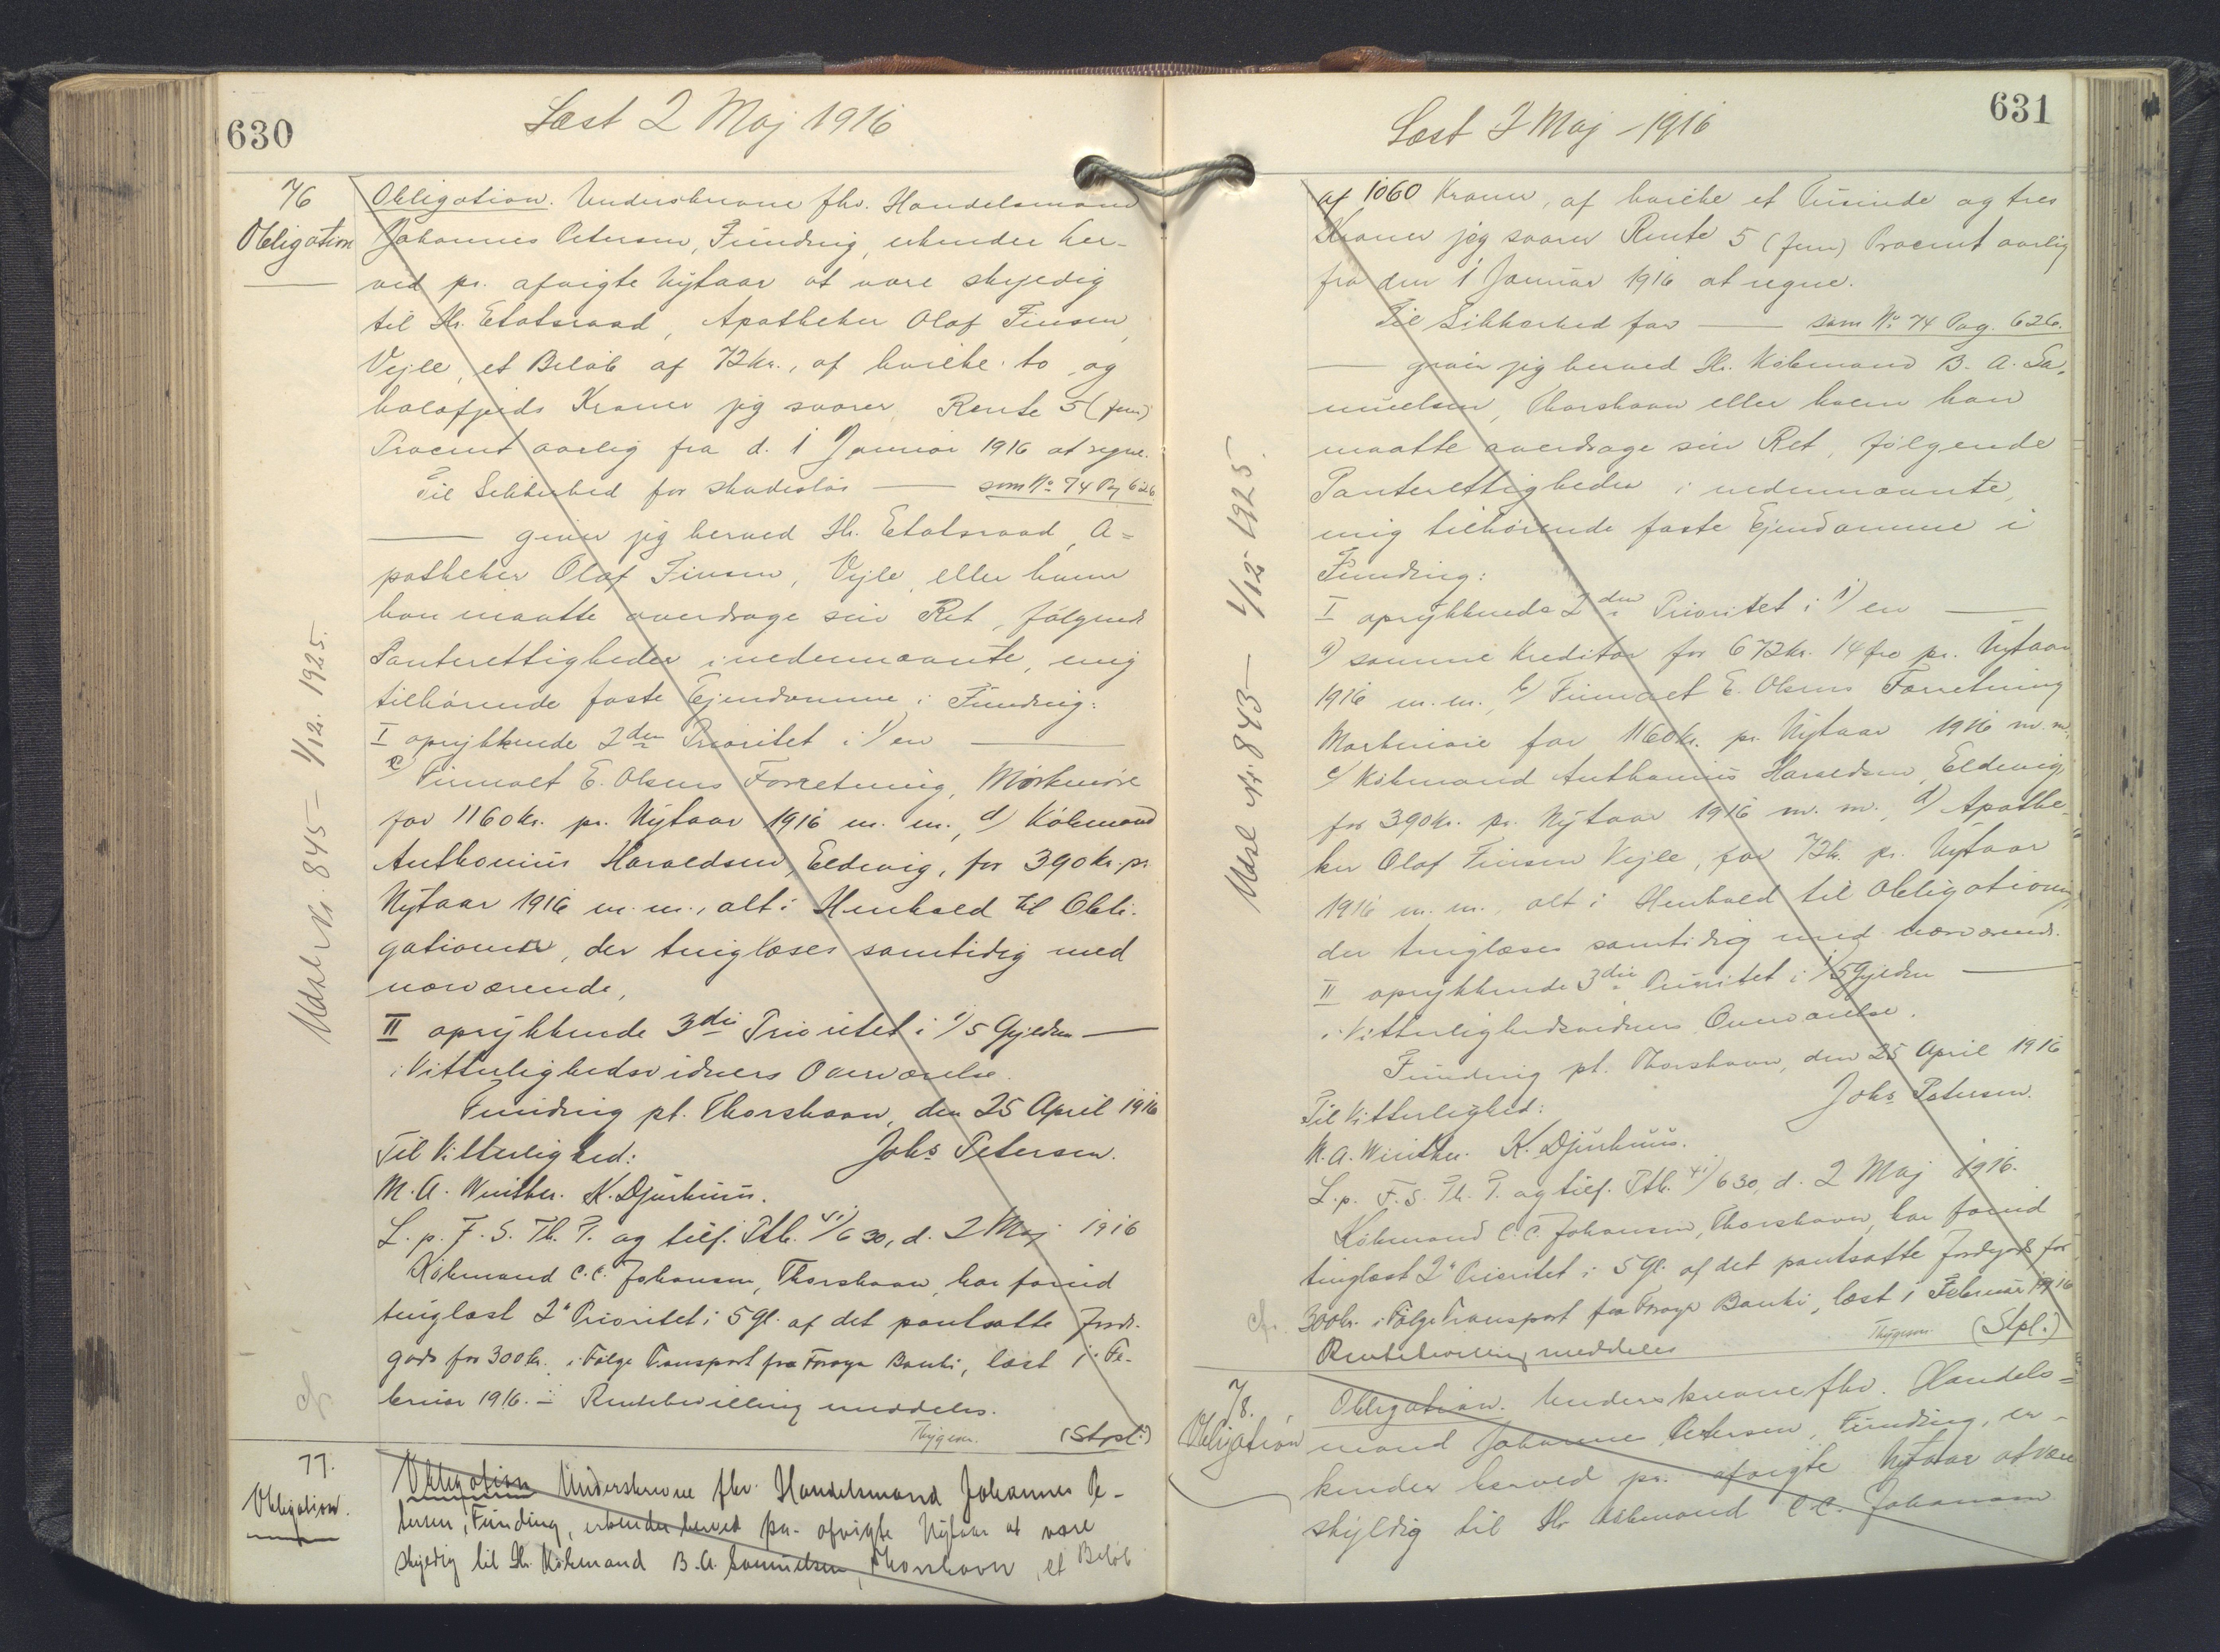 630
Læst 2 Maj 1916
76
Obligation
Obligation. Underskrevne fhv. Handelsmand
Johannes Petersen, Funding, erkender her-
ved pr. afvigte Nytaar at være skyldig
til Hr. Etatsraad, Apotheker Olaf Finsen,
Vejle, et Beløb af 72 kr., af hvilke to og
halvfjerds Kroner jeg svarer Rente 5 (fem)
Procent aarlig fra d. 1 Januar 1916 at regne.
Til Sikkerhed for skadesløs — som No 74 Pag 626
— giver jeg herved Hr. Etatsraad, A=
potheker Olaf Finsen, Vejle, eller hvem
han maatte overdrage sin Ret, følgende
Panterettigheder i nedennævnte, mig
tilhørende faste Ejendomme i Funding:
I oprykkende 2den Prioritet i 1) en —
c) Firmaet E. Olsens Forretning, Mørkmøre
for 1160 kr. pr. Nytaar 1916 m. m., d) Købmand
Anthonius Haraldsen, Eldevig, for 390 kr. pr.
Nytaar 1916 m. m., alt i Henhold til Obli-
gationer, der tinglæses samtidig med
nærværende,
II oprykkende 3die Prioritet i 1) 5 Gylden —
i Vitterlighedsvidners Overværelse.
Funding pt. Thorshavn, den 25 April 1916
Til Vitterlighed: Johs Petersen.
M. A. Winther. K. Djurhuus.
L. p. F. S. Th. P. og tilf. Ptb. VI/630, d. 2 Maj 1916
Købmand C. C. Johansen, Thorshavn, har forud
tinglæst 2' Prioritet i 5 Gl. af det pantsatte Jorde-
gods for 300 kr. i Følge Transport fra Færøya Banki, læst 1' Fe-
bruar 1916. — Rentebevilling meddeles.
Thygesen. (Stpl.)
Udsl. Nr. 845 — 1/12. 1925.
cfr.
77.
Obligation.
Obligation Underskrevne fhv. Handelsmand Johannes Pe-
tersen, Funding, erkender herved pr. afvigte Nytaar at være
skyldig til Hr. Købmand B. A. Samuelsen, Thorshavn, et Beløb
631
Læst 2 Maj 1916
af 1060 Kroner, af hvilke et Tusinde og tres
Kroner jeg svarer Rente 5 (fem) Procent aarlig
fra den 1 Januar 1916 at regne.
Til Sikkerhed for — som No 74 Pag. 626.
— giver jeg herved Hr. Købmand B. A. Sa-
muelsen, Thorshavn eller hvem han
maatte overdrage sin Ret, følgende
Panterettigheder i nedennævnte,
mig tilhørende faste Ejendomme i
Funding:
I oprykkende 2den Prioritet i 1) en —
a) samme Kreditor for 672 kr. 14 Øre pr. Nytaar
1916 m. m., b) Firmaet E. Olsens Forretning
Mørkmøre for 1160 kr. pr. Nytaar 1916 m. m.
c) Købmand Anthonius Haraldsen, Eldevig
for 390 kr. pr. Nytaar 1916 m. m., d) Apothe-
ker Olaf Finsen Vejle, for 72 kr. pr. Nytaar
1916 m. m., alt i Henhold til Obligationer,
der tinglæses samtidig med nærværende.
II oprykkende 3die Prioritet i 1) 5 Gylden —
i Vitterlighedsvidners Overværelse.
Funding pt. Thorshavn, den 25 April 1916
Til Vitterlighed: Johs Petersen.
M. A. Winther. K. Djurhuus.
L. p. F. S. Th. P. og tilf. Ptb. VI/630, d. 2 Maj 1916.
Købmand C. C. Johansen, Thorshavn, har forud
tinglæst 2' Prioritet i 5 Gl. af det pantsatte Jordegods for
300 kr. i Følge Transport fra Færøya Banki, læst 1 Februar 1916
Rentebevilling meddeles Thygesen. (Stpl.)
Udsl. Nr. 843 — 1/12 1925.
cfr.
78.
Obligation
Obligation. Underskrevne fhv. Handels=
mand Johannes Petersen, Funding, er-
kender herved pr. afvigte Nytaar at være
skyldig til Hr Købmand C. C. Johansen